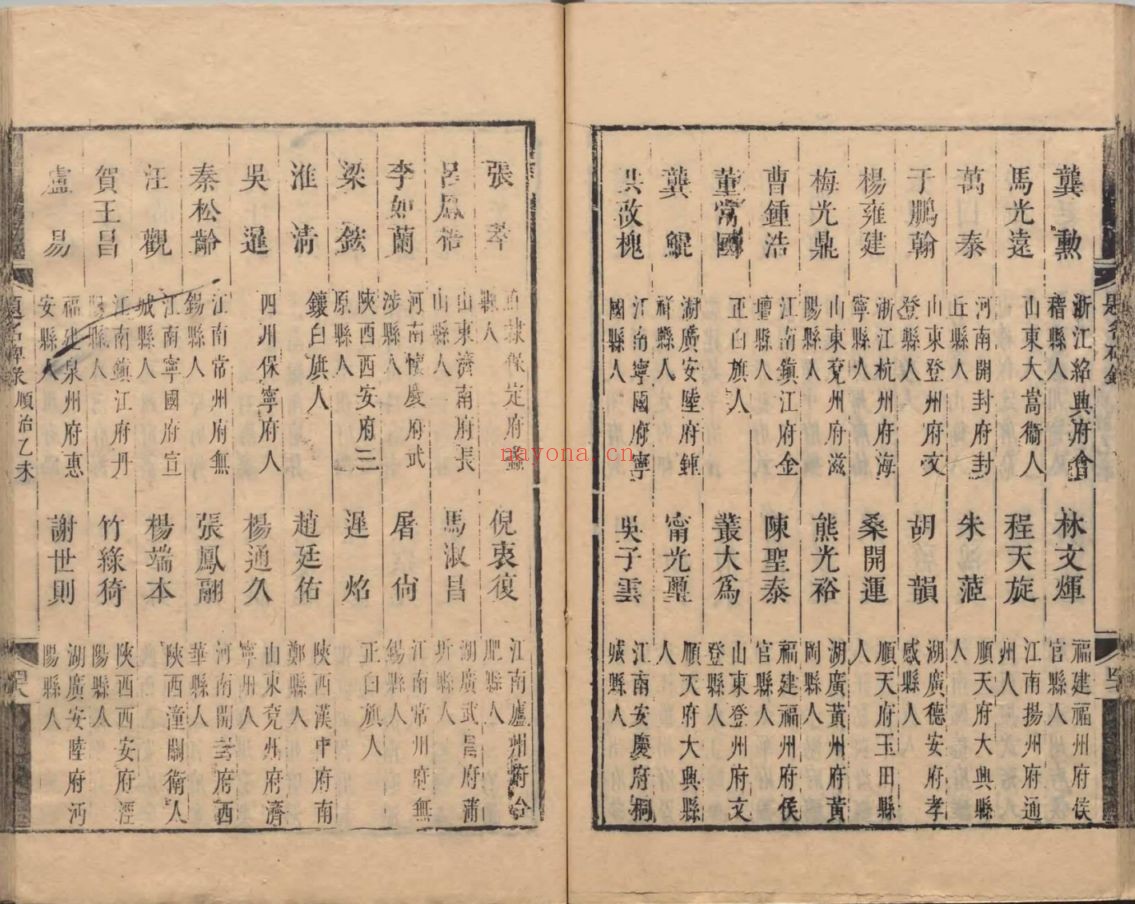 龔勳 浙江紹興府會稽縣人 林文輝 福建福州府侯官縣人
馬光遠 山東大嵩衞人 程天旋 江南揚州府通州人
萬泰 河南開封府封丘縣人 朱 順天府大興縣人
于鵬翰 山東登州府文登縣人 胡韻 湖廣德安府孝感縣人
楊雍建 浙江杭州府海寧縣人 桑開運 順天府玉田縣人
梅光鼎 山東兗州府滋陽縣人 熊光裕 湖廣黃州府黃岡縣人
曹鍾浩 江南鎮江府金壇縣人 陳聖泰 福建福州府侯官縣人
董常國 正白旗人 叢大為 山東登州府文登縣人
龔鯤 湖廣安陸府鍾祥縣人 甯光璽 順天府大興縣人
改槐 江南寧國府寧國縣人 吳子雲 江南安慶府桐城縣人
題名碑錄
張萃 直隸保定府蠡縣人 倪衷復 江南廬州府合肥縣人
呂鳳 山東濟南府長山縣人 馬淑昌 湖廣武昌府蒲圻縣人
李如蘭 河南懷慶府武涉縣人 屠尚 江南常州府無錫縣人
梁鋐 陝西西安府三原縣人 遲焰 正白旗人
淮清 鑲白旗人 趙廷佑 陝西漢中府南鄭縣人
吳暹 四川保寧府人 楊通久 山東兗州府濟寧州人
秦松齡 江南常州府無錫縣人 張鳳翮 河南開封府西華縣人
汪觀 江南寧國府宣城縣人 楊端本 陝西潼關衛人
賀王昌 江南鎮江府丹陽縣人 竹綠猗 陝西西安府涇陽縣人
盧易 福建泉州府惠安縣人 謝世則 湖廣安陸府沔陽縣人
題名碑錄 順治乙未
nayona.cn